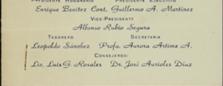 Presidente Honorario Presidente Ejecutivo
Enrique Benítez Cont. Guillermo A. Martínez
Vice-Presidente
Alfonso Rubio Segura
Tesorero Secretaria
Leopoldo Sánchez Profa. Aurora Artime A.
Consejeros:
Lic. Luis G. Rosales Dr. José Aurioles Díaz